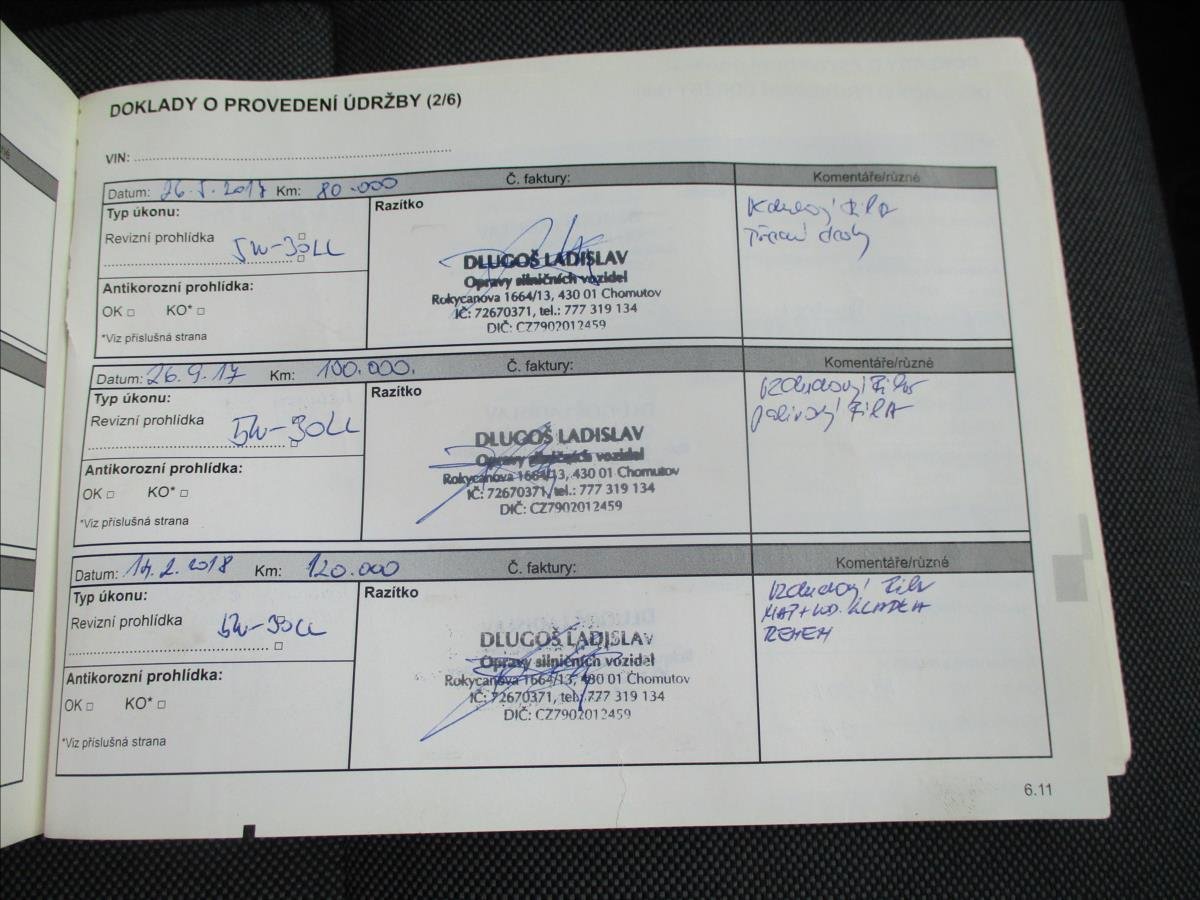 DOKLADY O PROVEDENÍ ÚDRŽBY (2/6)
VIN:
Datum: 26.5.2017 Km: 80.000 Č. faktury: Komentáře/různé
Typ úkonu:
Revizní prohlídka
5W-30LL
Antikorozní prohlídka:
OK □ KO* □
*Viz příslušná strana
Razítko
DLUGOŠ LADISLAV
Opravy silničních vozidel
Rokycanova 1664/13, 430 01 Chomutov
IČ: 72670371, tel.: 777 319 134
DIČ: CZ7902012459
Datum: 26.9.17 Km: 100.000. Č. faktury: Komentáře/různé
Typ úkonu:
Revizní prohlídka
5W-30LL
Antikorozní prohlídka:
OK □ KO* □
*Viz příslušná strana
Razítko
DLUGOŠ LADISLAV
Opravy silničních vozidel
Rokycanova 1664/13, 430 01 Chomutov
IČ: 72670371, tel.: 777 319 134
DIČ: CZ7902012459
Vzduchový Filtr
palivový Filtr
Datum: 14.2.2018 Km: 120.000 Č. faktury: Komentáře/různé
Typ úkonu:
Revizní prohlídka
5W-30LL
Antikorozní prohlídka:
OK □ KO* □
*Viz příslušná strana
Razítko
DLUGOŠ LADISLAV
Opravy silničních vozidel
Rokycanova 1664/13, 430 01 Chomutov
IČ: 72670371, tel.: 777 319 134
DIČ: CZ7902012459
Vzduchový Filtr
6.11